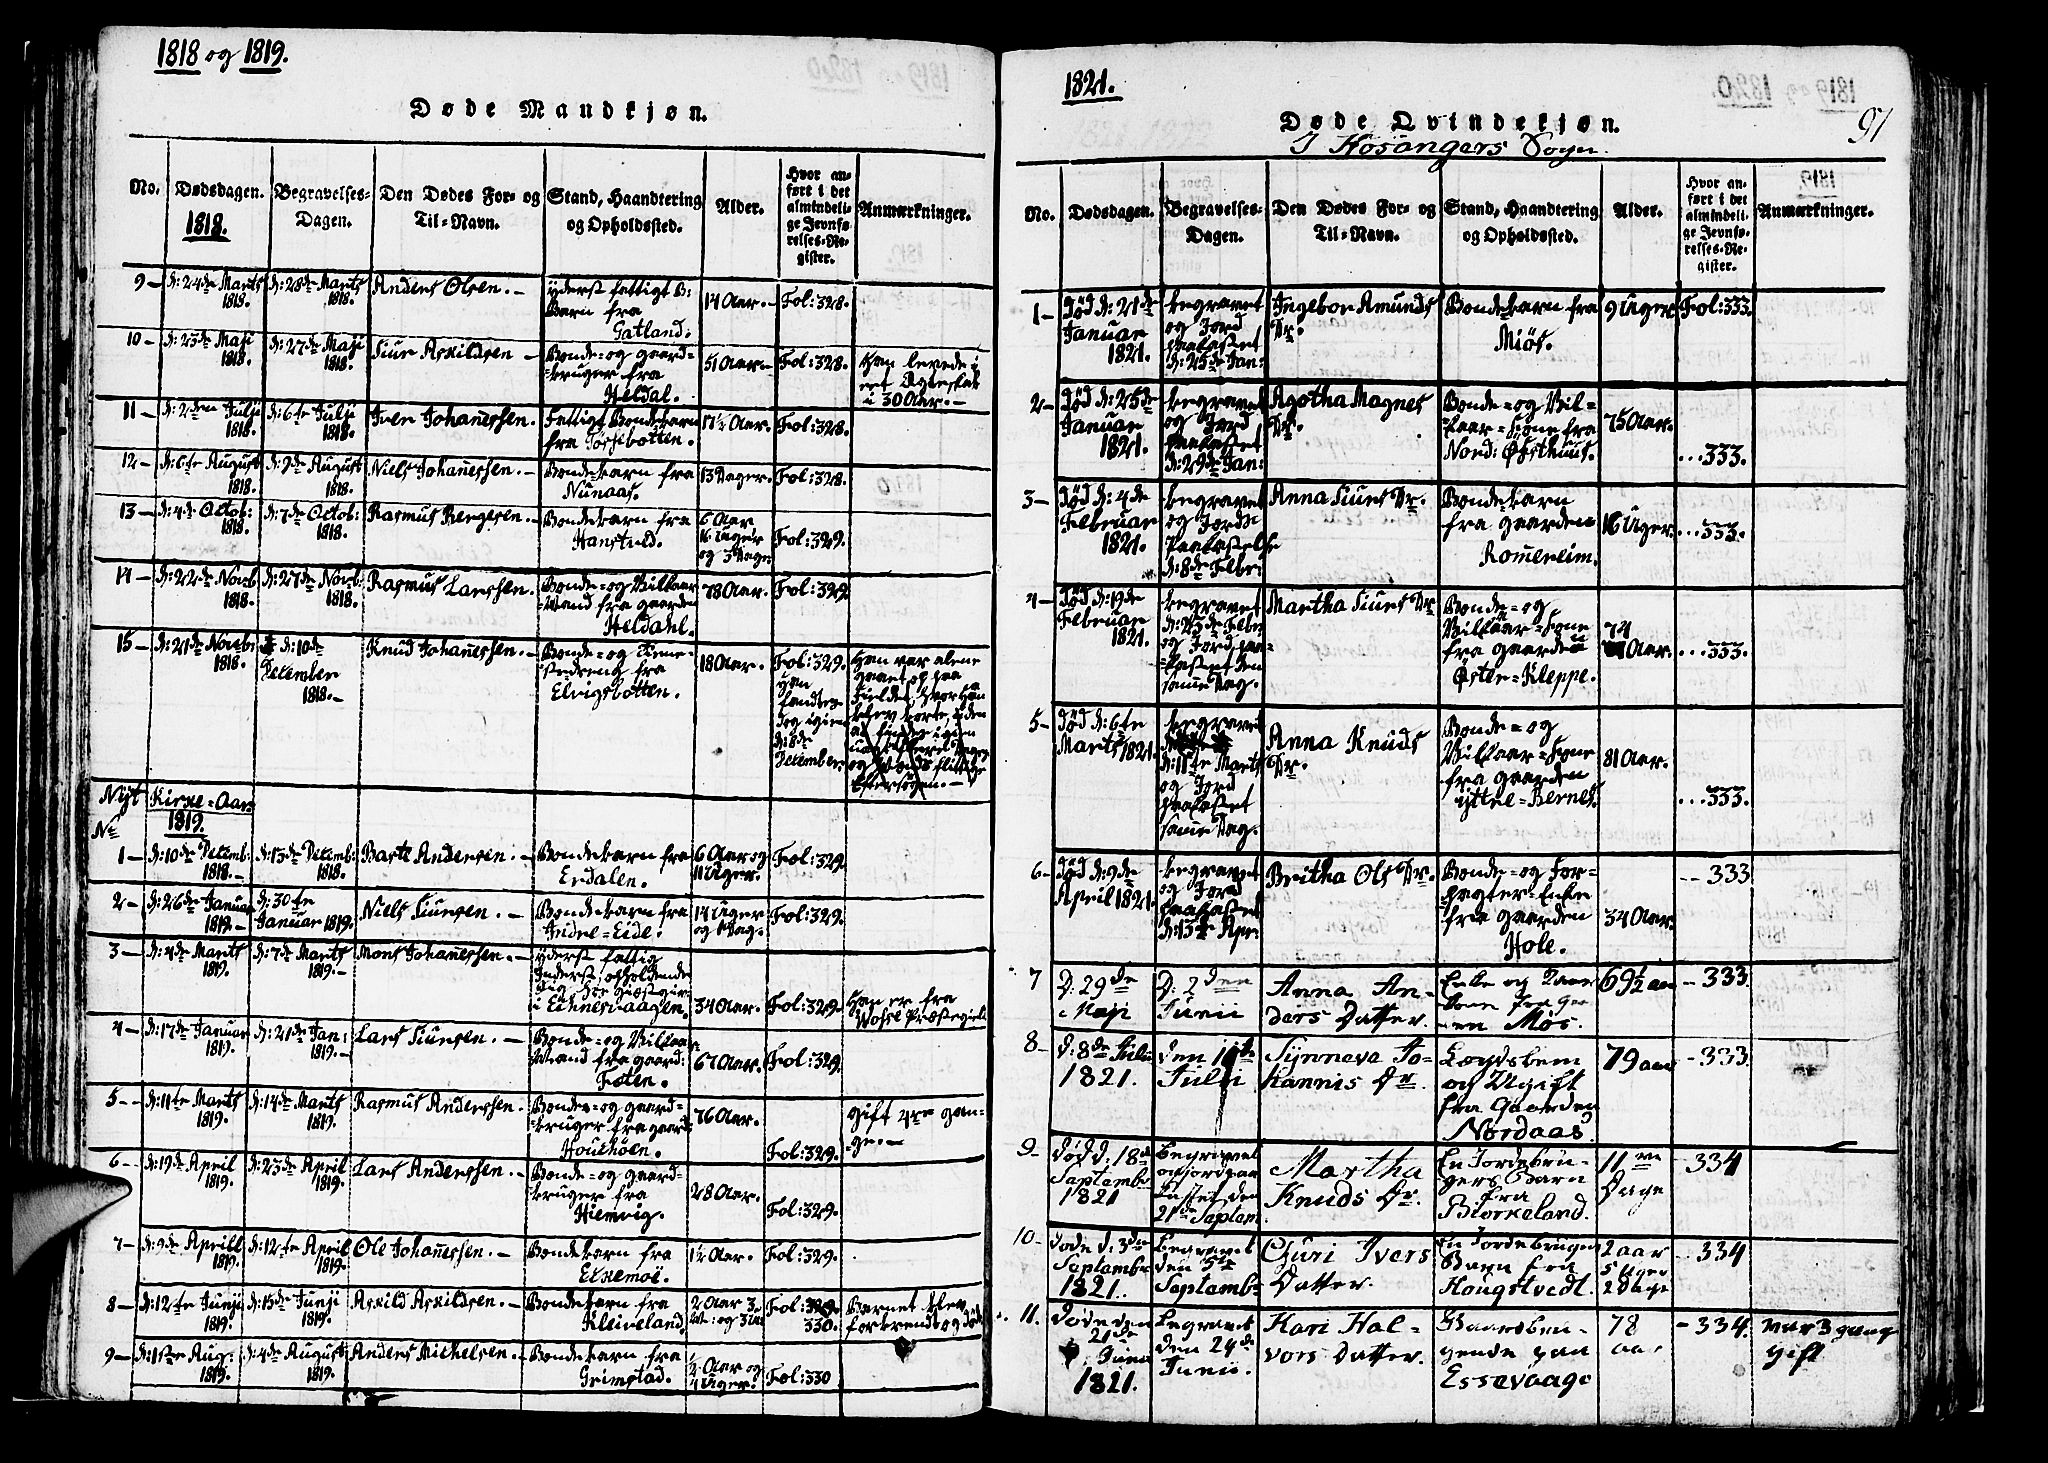 1818 og 1819.
Døde Mandkjøn.
No.
Dødsdagen.
1818.
Begravelses-
Dagen.
Den Dødes For- og
Til-Navn.
Stand, Haandtering
og Opholdssted.
Alder.
Hvor an-
ført i det
almindeli-
ge Jevnfø-
relses-Re-
gister.
Anmærkninger.
9 -
d: 24de Marts
1818.
d: 28de Marts
1818.
Anders Olsen. -
yderst fattigt B:
Barn fra
Gatland.
14 Aar. -
Fol: 328.
10 -
d: 23de Maji
1818.
d: 27de Maji
1818.
Siur Askildsen -
Bonde- og gaard-
bruger fra
Heldal.
51 Aar -
Fol: 328.
Han levede i
eet Ægteskab
i 30 Aar. -
11 -
d: 2den Julji
1818.
d: 6te Julji
1818.
Iver Johanessen -
Fattigt Bondebarn
fra Tossebotten.
Fol: 328.
12 -
d: 6te August
1818.
d: 9de August
1818.
Niels Johanessen. -
Bondebarn fra
Nunaas.
13 Dager.
Fol: 328.
13 -
d: 4de Octob:
1818.
d: 7de Octob:
1818.
Rasmus Bergesen -
Bondebarn fra
Hanstveld.
6 Aar
16 Uger
og 3 Dage
Fol: 329.
14 -
d: 22de Novb:
1818.
d: 27de Novb:
1818.
Rasmus Larssen.
Bonde- og Vilkaar
Mand fra gaarden
Heldahl.
78 Aar.
Fol: 329
15 -
d: 21de Novbr:
1818.
d: 10de
December
1818. -
Knud Johanessen. -
Bonde- og Tiene-
stedreng fra
Elvigsbotten.
18 Aar.
Fol: 329.
Han
fandtes
dog igien
d: 8de
December.
Han var alene
gaaet op paa
Fieldet, hvor han
blev borte, uden
at findes igien
uagtet
og flittige
Eftersøgen. -
Nyt Kirke-Aar
No
1819.
1 -
d: 10de Decemb:
1818. -
d: 13de Decemb:
1818.
Baste Andersen. -
Bondebarn fra
Erdalen.
6 Aar og
11 Uger.
Fol: 329.
2 -
d: 26de Januar
1819. -
d: 30te
Januar 1819.
Niels Siursen. -
Bondebarn fra
Indre-Eide.
14 Uger
og 1 Dag.
Fol: 329.
3 -
d: 4de Marts
1819.
d: 7de Marts
1819. -
Mons Johanessen. -
yderst fattig
Inderst, opholdende
sig hos giæstgiv:
i Eiknesvaagen.
34 Aar.
Fol: 329.
Han er fra
Wosse Præstegield
4 -
d: 17de Januar
1819.
d: 21de Jan:
1819. -
Lars Siursen. -
Bonde- og Vilkaar
Mand fra gaard:
Foten.
67 Aar.
Fol: 329.
5 -
d: 11te Marts
1819.
d: 14de Marts
1819.
Rasmus Anderssen.
Bonde- og gaard-
bruger fra gaard:
Houshoen.
76 Aar.
Fol: 329.
gift 4re gan-
ge. -
6 -
d: 19de April
1819.
d: 23de April
1819.
Lars Anderssen. -
Bonde- og gaard-
bruger fra
Hiemvig.
28 Aar.
Fol: 329.
7 -
d: 9de Aprill
1819.
d: 12te April
1819.
Ole Johanessen. -
Bondebarn fra
Eknemoe.
1½ Aar.
Fol: 329.
8 -
d: 12te Junji
1819.
d: 15de Junji
1819.
Askild Askildsen. -
Bondebarn fra
Kleiveland.
2 Aar 3
Fol: 329
330.
Barnet blev
forbrendt og døde
9 -
d: 1ste Aug:
1819.
d: 4de August
1819.
Anders Michelsen. -
Bondebarn fra
Grimstad.
2 Aar og
4 Uger.
Fol: 330
1821.
Døde Qvindekjøn.
I Hosangers Sogn.
97
No.
Dødsdagen.
Begravelses-
Dagen.
Den Dødes For- og
Til-Navn.
Stand, Haandtering
og Opholdssted.
Alder.
Hvor an-
ført i det
almindeli-
ge Jevnfø-
relses-Re-
gister.
Anmærkninger.
1 -
Død d: 21de
Januar
1821.
begravet
og Jord
paakastet
d: 25de Jan:
Ingebor Amunds
Dr.
Bondebarn fra
Miøs.
9 Uger
Fol: 333.
2 -
Død d: 25de
Januar
1821.
begravet
og Jord
paakastet
d: 29de Jan:
Agotha Magnes
Dr.
Bonde- og Vil-
kaar-Kone fra
Nord: Østhuus.
75 Aar.
... 333.
3 -
Død d: 4de
Februar
1821.
begravet
og Jords
Paakastelse
d: 8de Febr:
Anna Siurs Dr.
Bondebarn
fra gaarden
Romereim.
16 Uger.
... 333.
4 -
Død d: 19de
Februar
1821.
begravet
d: 23de Febr
og Jord paa-
kastet den
samme Dag.
Martha Siurs Dr
Bonde- og
Vilkaar-Kone
fra gaarden
Øster-Kleppe.
74
Aar.
... 333.
5 -
Død d: 6te
Marts 1821.
begravet
d: 11te Marts
og Jord
paakastet
samme Dag.
Anna Knuds
Dr.
Bonde- og
Vilkaar-Kone
fra gaarden
yttre-Bernes.
81 Aar.
... 333.
6 -
Død d: 9de
April 1821.
begravet
og Jord
paakastet
d: 13de Apr:
Britha Ols Dr.
Bonde- og For-
pagter-Enke
fra gaarden
Hole.
34 Aar.
-- 333
7
D: 29de
Maji
D: 2den
Junii
Anna An-
ders Datter.
Enke og
Møs.
69½ aar
-- 333
8 -
d: 8de Julii
1821.
Julii
Synneva Jo-
hannis Dr
Lægdslem
og Ugift
fra Gaarden
Nordaas.
79 aar
- 333.
9 -
død d. 18de
Septembr
1821
begravet
og jord paa
kastet den
21de Septem.
Martha
Knuds Dr.
En Jordebru-
gers Barn
fra
Biorkeland.
11 ve
Dage
- 334
10 -
døde d. 3die
Septembr
1821.
begravet
den 5te
Septemb:
Guri Ivers
Datter.
En Jordebruger
Barn fra
Hougstvedt.
2 aar
5 Uger
2 Dage
-- 334
11.
Døde den
21de
Junii
1821.
begravet
den 24de
Junii.
Kari Hal-
vors Datter.
Huusbru-
gende paa
Essevaage
78
aar
- 334.
var 3 gang
gift